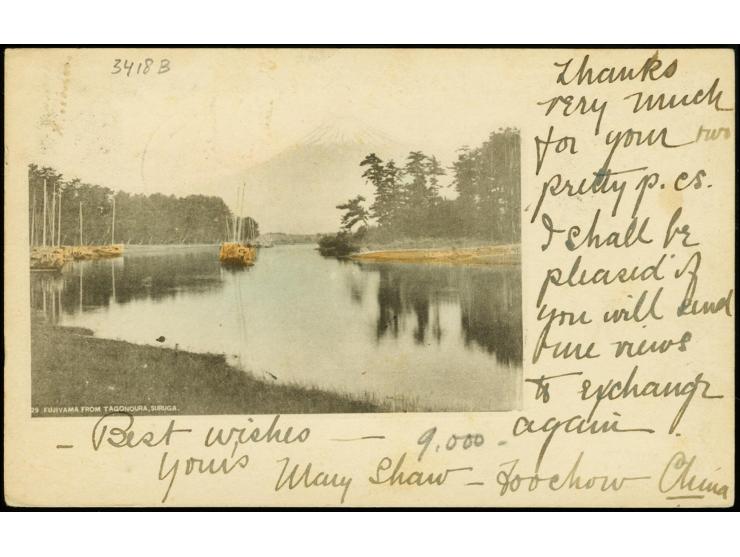 3418 B
Thanks
very much
for your two
pretty p.cs.
I shall be
pleased if
you will send
fine views
to exchange
again.
29 FUJIYAMA FROM TAGONOURA, SURUGA.
- Best wishes —
9,000 -
Yours Mary Shaw - Foochow China